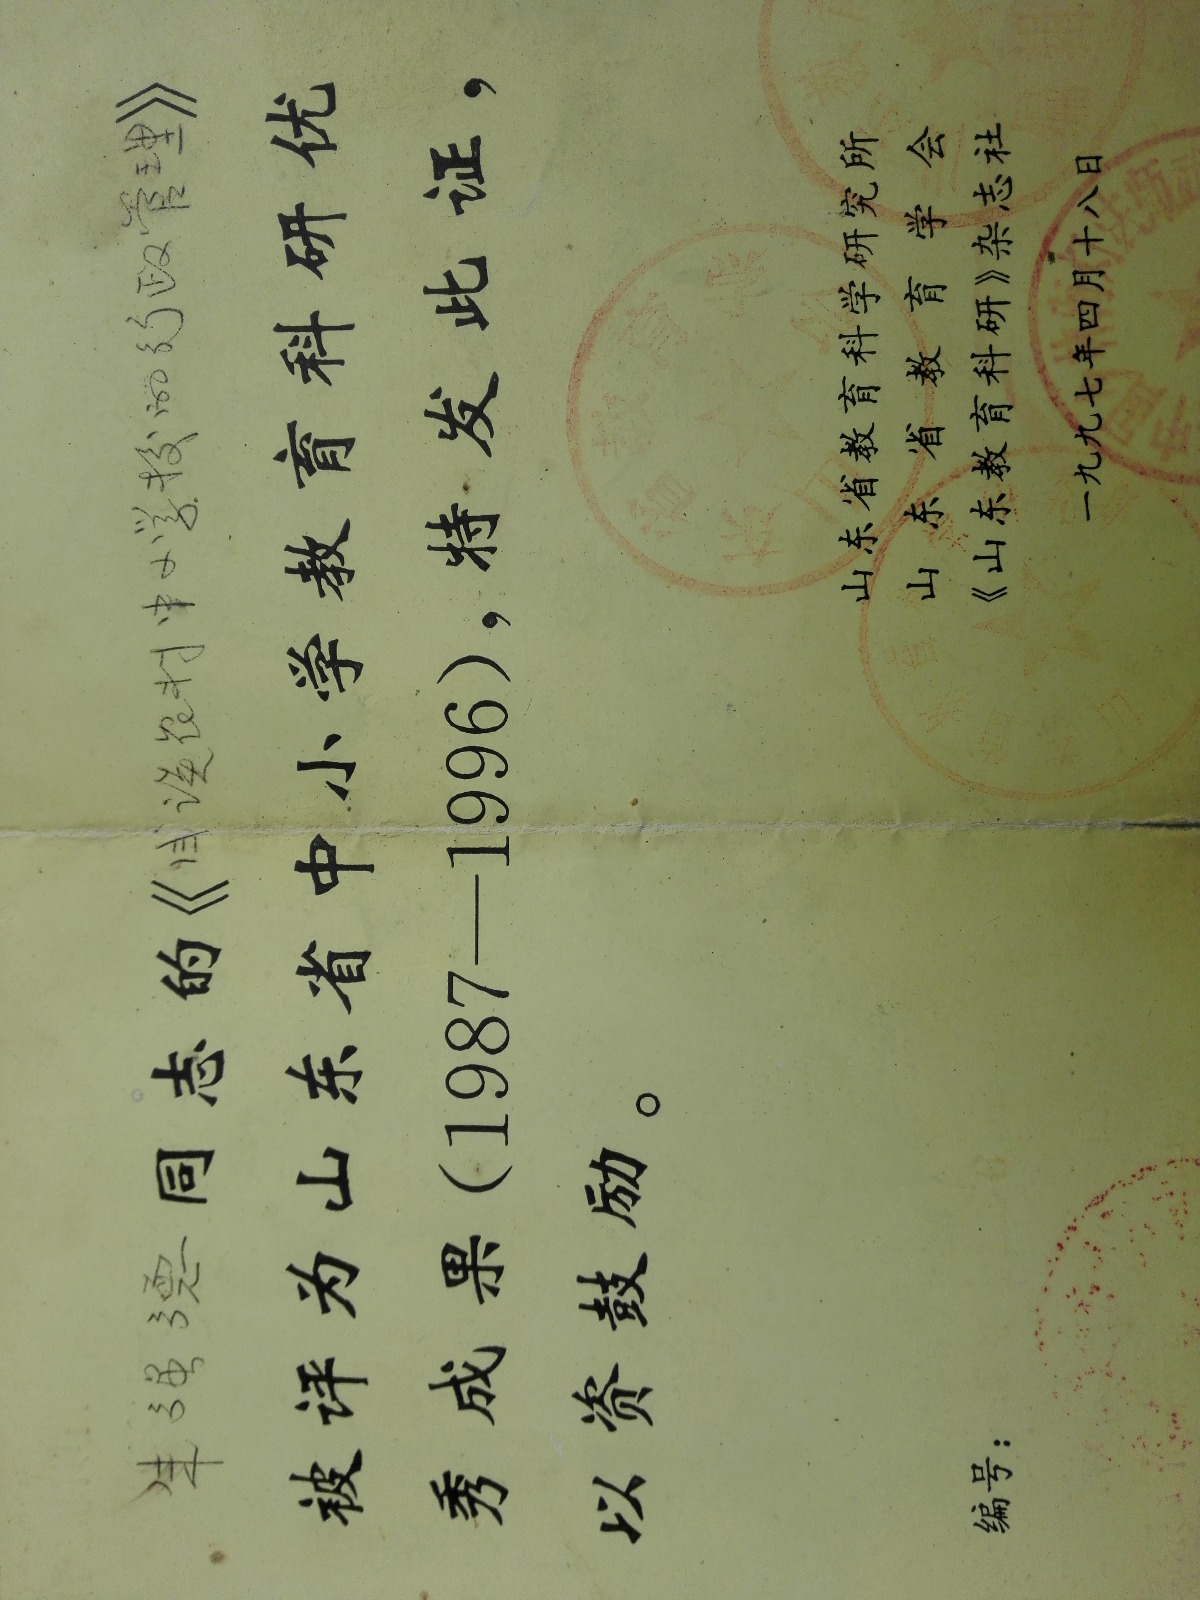 同志的《试谈农村中小学校的行政管理》
被评为山东省中小学教育科研优
秀成果(1987—1996),特发此证,
以资鼓励。
山东省教育科学研究所
山东省教育学会
《山东教育科研》杂志社
一九九七年四月十八日
编号: